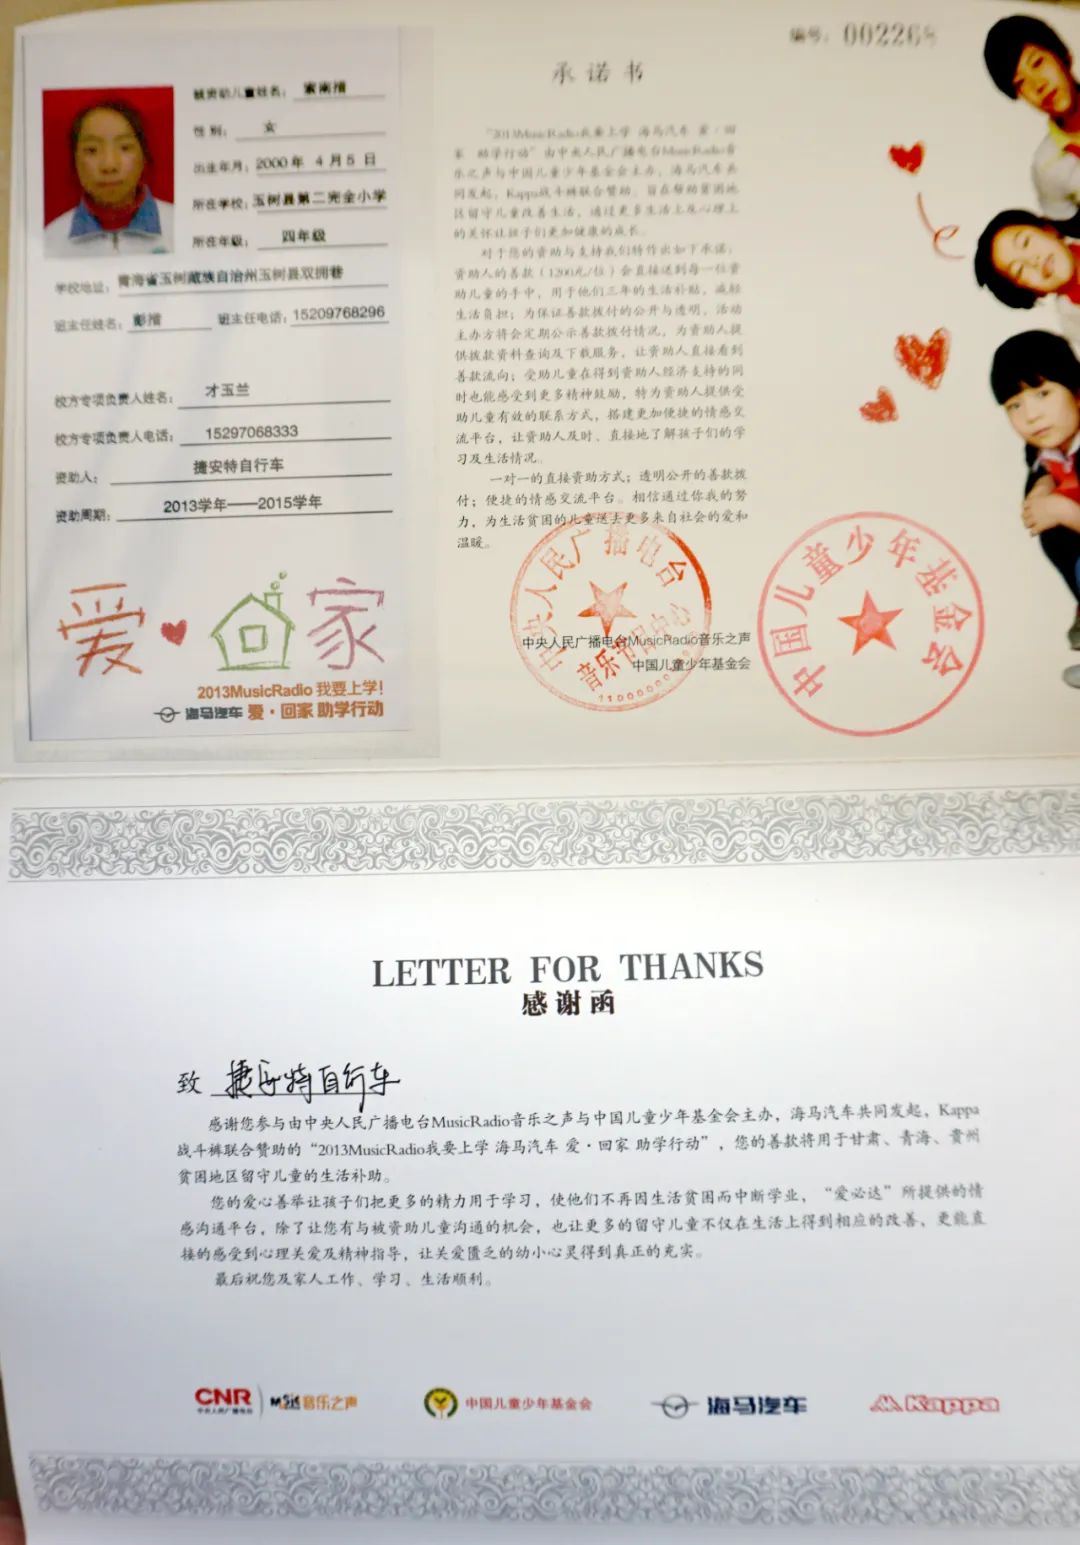 被资助儿童姓名：索南措
性别：女
出生年月：2000年 4月5日
所在学校：玉树县第二完全小学
所在年级：四年级
学校地址：青海省玉树藏族自治州玉树县双拥巷
班主任姓名：彭措 班主任电话：15209768296
校方专项负责人姓名：才玉兰
校方专项负责人电话：15297068333
资助人：捷安特自行车
资助周期：2013学年——2015学年
爱 家
2013MusicRadio 我要上学！
海马汽车 爱·回家 助学行动
编号：002268
承诺书
“2013MusicRadio我要上学 海马汽车 爱·回
家 助学行动”由中央人民广播电台MusicRadio音
乐之声与中国儿童少年基金会主办，海马汽车共
同发起，Kappa战斗裤联合赞助。旨在帮助贫困地
区留守儿童改善生活，通过更多生活上及心理上
的关怀让孩子们更加健康的成长。
对于您的资助与支持我们特作出如下承诺：
资助人的善款（1200元/位）会直接送到每一位资
助儿童的手中，用于他们三年的生活补贴，减轻
生活负担；为保证善款拨付的公开与透明，活动
主办方将会定期公示善款拨付情况，为资助人提
供拨款资料查询及下载服务，让资助人直接看到
善款流向；受助儿童在得到资助人经济支持的同
时也能感受到更多精神鼓励，特为资助人提供受
助儿童有效的联系方式，搭建更加便捷的情感交
流平台，让资助人及时、直接地了解孩子们的学
习及生活情况。
一对一的直接资助方式；透明公开的善款拨
付；便捷的情感交流平台。相信通过你我的努
力，为生活贫困的儿童送去更多来自社会的爱和
温暖。
中央人民广播电台
音乐节目中心
中央人民广播电台MusicRadio音乐之声
中国儿童少年基金会
中国儿童少年基金会
LETTER FOR THANKS
感谢函
致 捷安特自行车
感谢您参与由中央人民广播电台MusicRadio音乐之声与中国儿童少年基金会主办，海马汽车共同发起，Kappa
战斗裤联合赞助的“2013MusicRadio我要上学 海马汽车 爱·回家 助学行动”，您的善款将用于甘肃、青海、贵州
贫困地区留守儿童的生活补助。
您的爱心善举让孩子们把更多的精力用于学习，使他们不再因生活贫困而中断学业，“爱必达”所提供的情
感沟通平台，除了让您有与被资助儿童沟通的机会，也让更多的留守儿童不仅在生活上得到相应的改善，更能直
接的感受到心理关爱及精神指导，让关爱匮乏的幼小心灵得到真正的充实。
最后祝您及家人工作、学习、生活顺利。
CNR 中央人民广播电台 Music 音乐之声 中国儿童少年基金会 海马汽车 Kappa